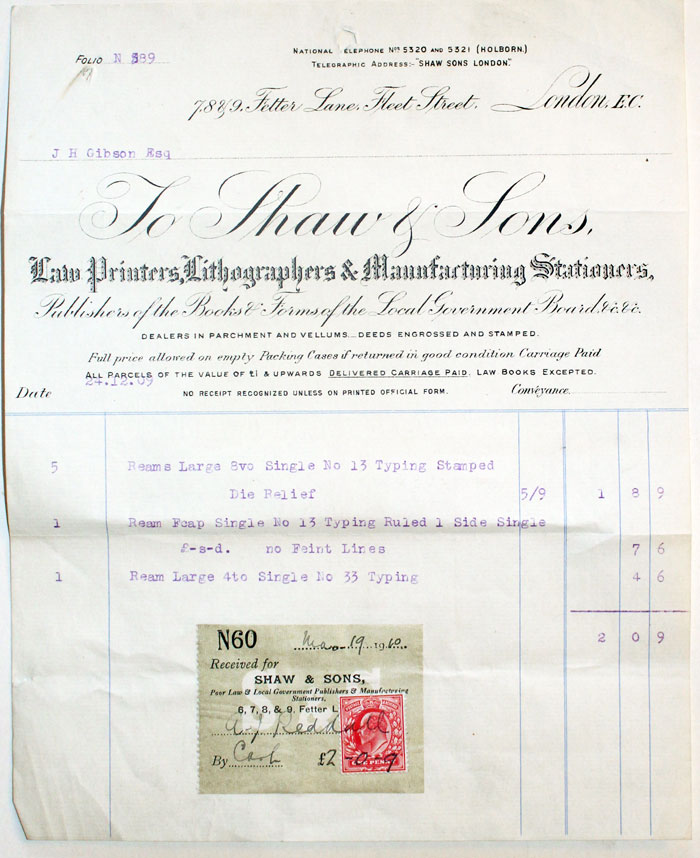 National Telephone Nos 5320 and 5321 (Holborn.)
Folio N 389
Telegraphic Address:- "Shaw Sons London."
7, 8 & 9, Fetter Lane, Fleet Street, London, E.C.
J H Gibson Esq
To Shaw & Sons,
Law Printers, Lithographers & Manufacturing Stationers,
Publishers of the Books & Forms of the Local Government Board, &c. &c.
DEALERS IN PARCHMENT AND VELLUMS... DEEDS ENGROSSED AND STAMPED.
Full price allowed on empty Packing Cases if returned in good condition Carriage Paid
ALL PARCELS OF THE VALUE OF £1 & UPWARDS DELIVERED CARRIAGE PAID. LAW BOOKS EXCEPTED.
24.12.09
Date NO RECEIPT RECOGNIZED UNLESS ON PRINTED OFFICIAL FORM. Conveyance
5 Reams Large 8vo Single No 13 Typing Stamped
Die Relief 5/9 1 8 9
1 Ream Fcap Single No 13 Typing Ruled 1 Side Single
£-s-d. no Feint Lines 7 6
1 Ream Large 4to Single No 33 Typing 4 6
2 0 9
N60 19 1910
Received for
SHAW & SONS,
Poor Law & Local Government Publishers & Manufacturing
Stationers,
6, 7, 8, & 9, Fetter L
By Cash £2-0-9